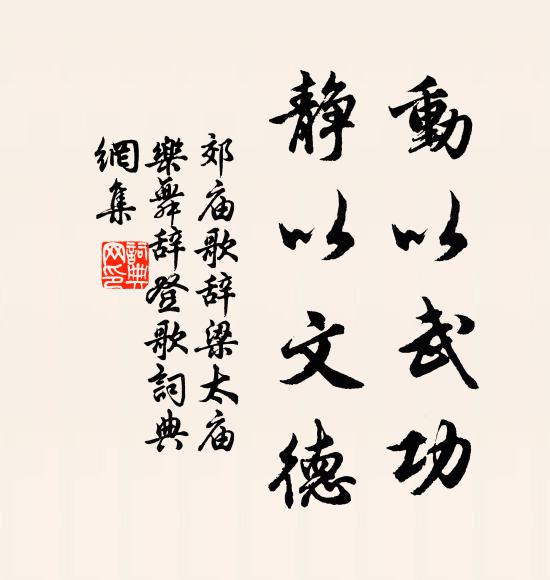 動以武功
静以文德
郊庙歌辞梁太庙
樂舞辞登歌詞典
網集
詞典网印